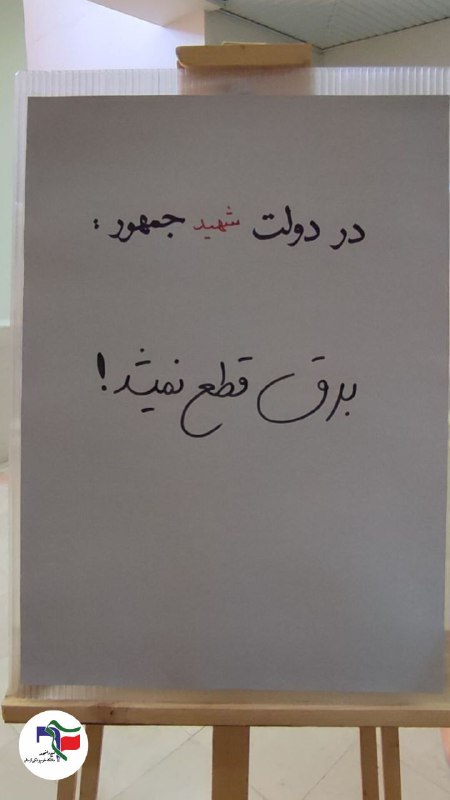 در دولت شهید جمهور :
برق قطع نمیشد!